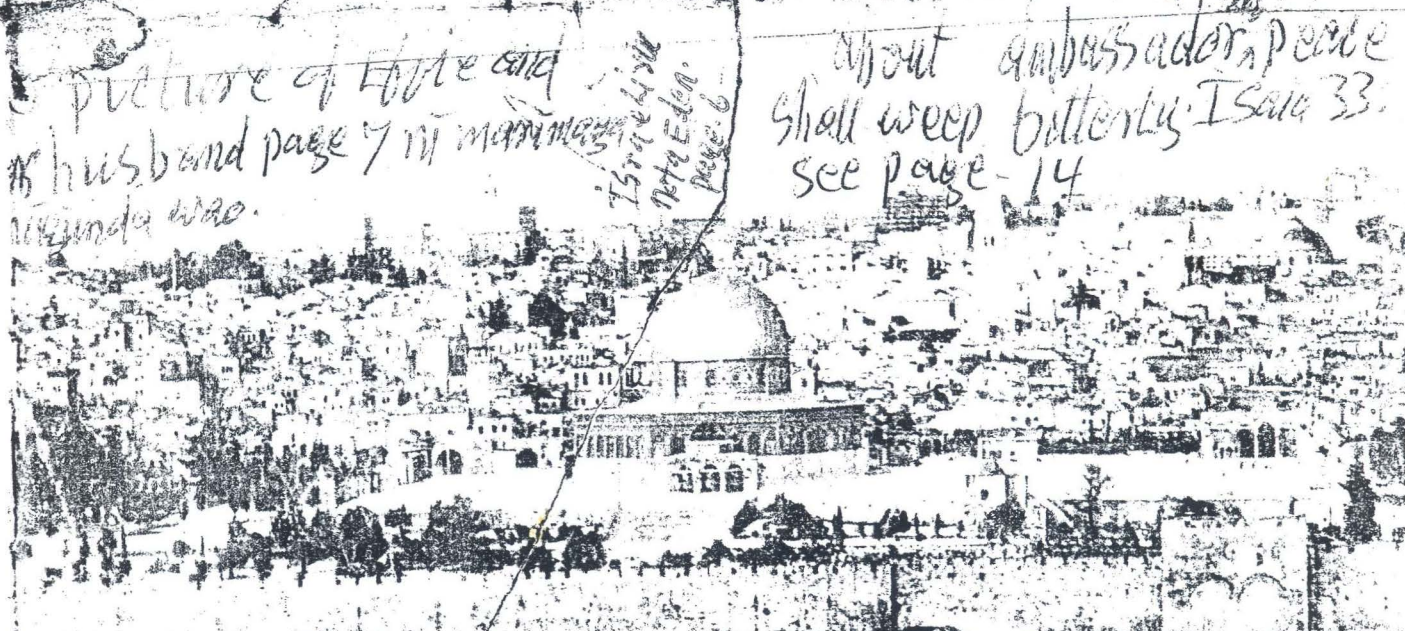 picture of Effie and
husband page 7 ni
wao.
Israel
nota Eden.
page 6
about ambassador, peace
shall weep bitterly. Isaia 33.
see page - 14